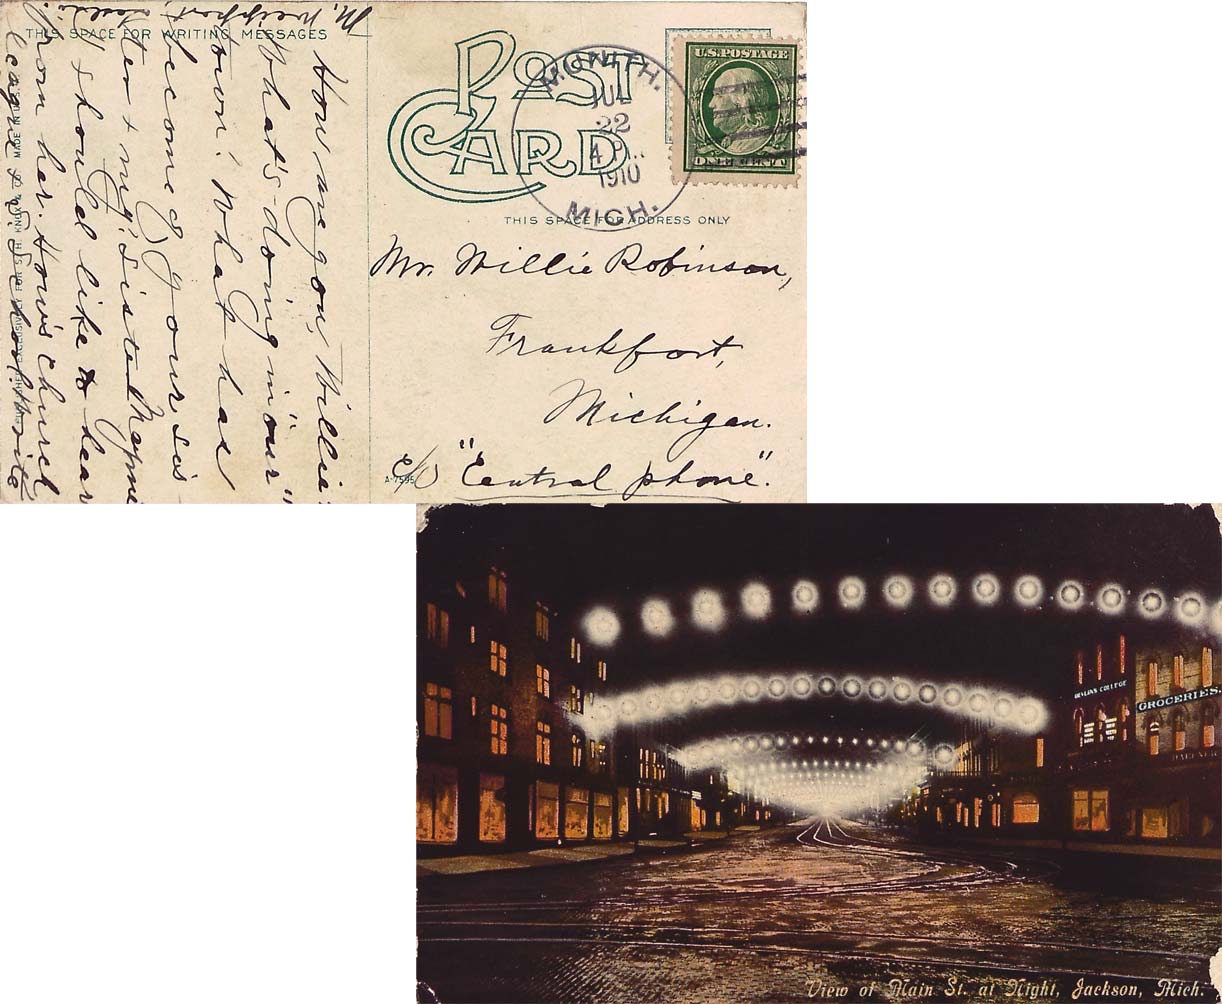 THIS SPACE FOR WRITING MESSAGES
How are you, Willie?
What's doing in "our"
town? What has
become of your sis
ter & my sister
I should like to hear
from her. How's church
league & Write
PUBLISHED EXCLUSIVELY FOR S. H. KNOX & CO. MADE IN U.S.
POST
CARD
MUNITH.
JUL
22
4 P.
1910
MICH.
U.S. POSTAGE
ONE CENT
THIS SPACE FOR ADDRESS ONLY
Mr. Willie Robinson,
Frankfort,
Michigan.
c/o "Central phone."
A-7595
DEVLINS COLLEGE
GROCERIES.
View of Main St. at Night, Jackson, Mich.